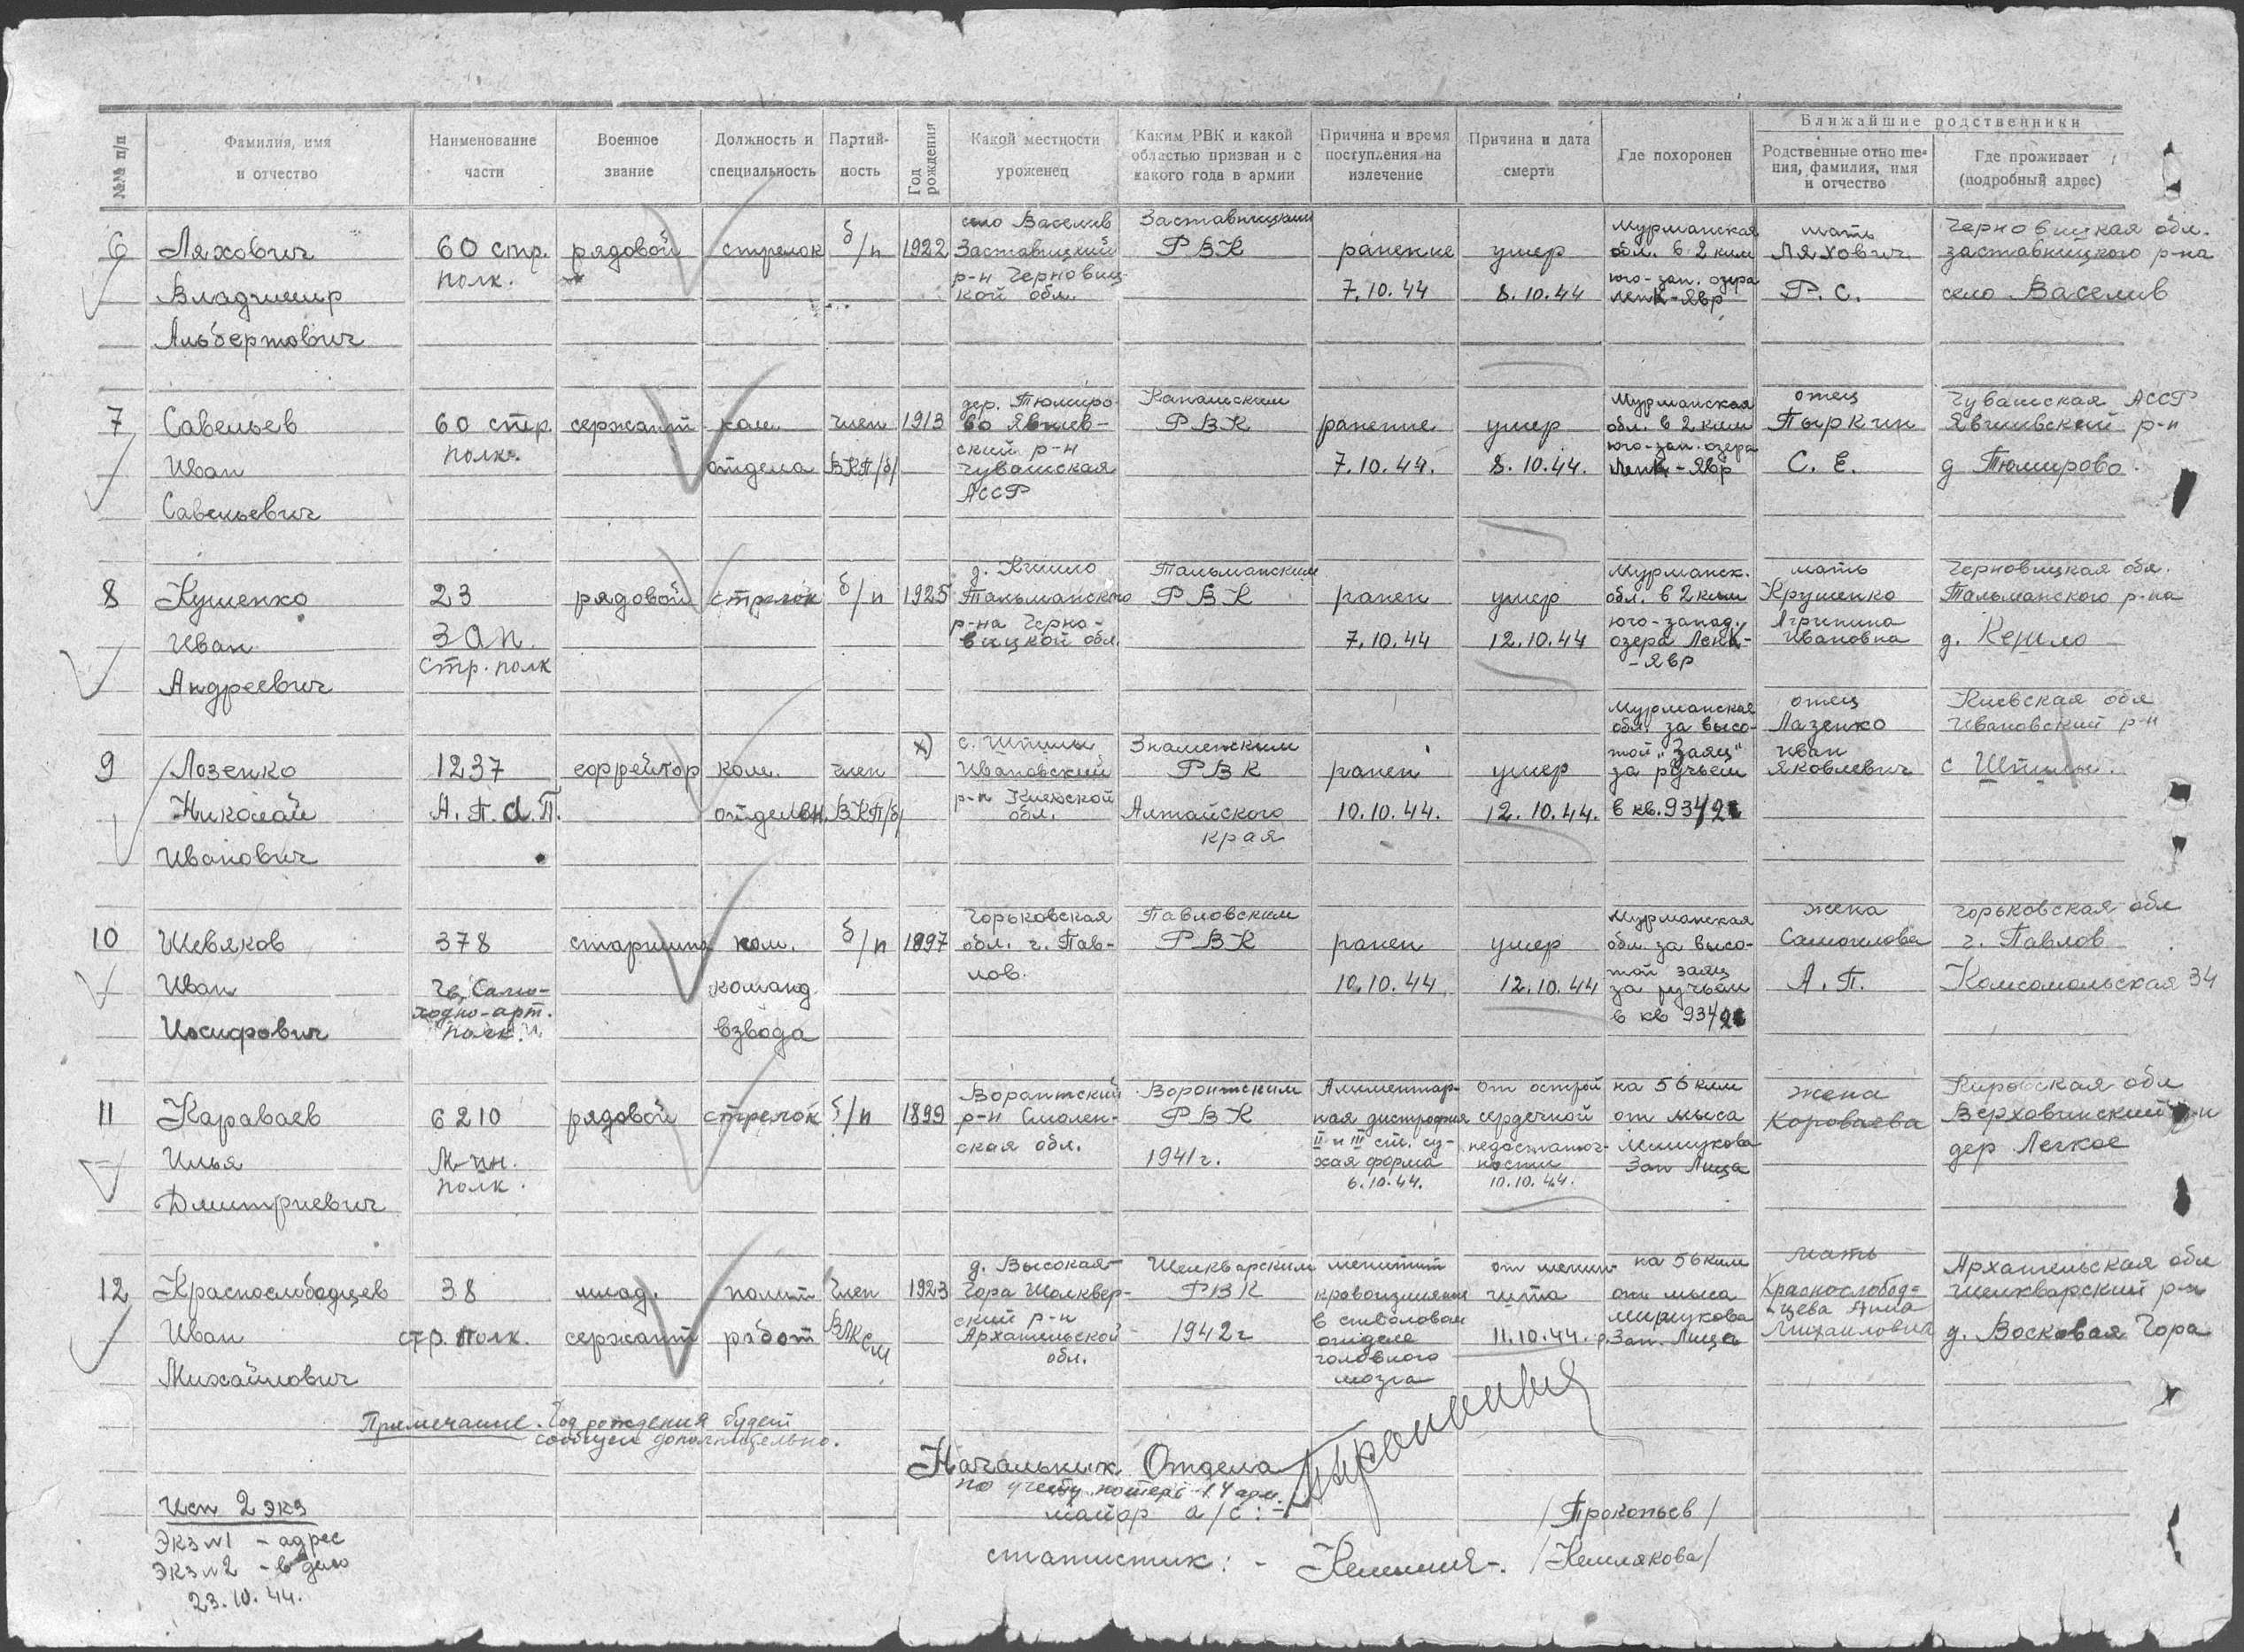 №№ п/п
Фамилия, имя и отчество
Наименование части
Военное звание
Должность и специальность
Партий-ность
Год рождения
Какой местности уроженец
Каким РВК и какой областью призван и с какого года в армии
Причина и время поступления на излечение
Причина и дата смерти
Где похоронен
Ближайшие родственники
Родственные отноше-ния, фамилия, имя и отчество
Где проживает (подробный адрес)
6
Ляхович
Владимир
Альбертович
60 стр.
полк.
рядовой
стрелок
б/п
1922
село Васелив
Заставницкий
р-н Черновиц-
кой обл.
Заставницким
РВК
ранение
7.10.44
умер
8.10.44
Мурманская
обл. в 2 клм
юго-зап. озера
Ленк-Явр
мать
Ляхович
Р. С.
Черновицкая обл.
заставницкого р-на
село Васелив
7
Савельев
Иван
Савельевич
60 стр.
полк.
сержант
ком.
отдела
член
ВКП/б/
1913
дер. Тюмиро-
во Явшев-
ский р-н
Чувашская
АССР
Канашским
РВК
ранение
7.10.44.
умер
8.10.44.
Мурманская
обл. в 2 клм
юго-зап. озера
Ленк-Явр
отец
Пыркин
С. Е.
Чувашская АССР
р-н
д Тюмирово.
8
Кушенко
Иван
Андреевич
23
Зап.
стр. полк
рядовой
стрелок
б/п
1925
д.
Тальманского
р-на Черно-
вицкой обл.
Тальманским
РВК
ранен
7.10.44
умер
12.10.44
Мурманск.
обл. в 2 клм
юго-запад.
озера Ленк-
-Явр
мать
Крушенко
Агрипина
Ивановна
Черновицкая обл.
Тальманского р-на
д. Кешло
9
Лозенко
Николай
Иванович
1237
А. П. а. П.
ефрейтор
ком.
отделен.
член
ВКП/б/
х)
с. Шпилы
Ивановский
р-н Киевской
обл.
Знаменским
РВК
Алтайского
края
ранен
10.10.44.
умер
12.10.44.
Мурманская
обл. за высо-
той „Заяц"
за ручьем
в кв.
отец
Лазенко
Иван
Яковлевич
Киевская обл
Ивановский р-н
с Шпилы.
10
Шевяков
Иван
Иосифович
378
Гв. Само-
ходно-арт.
полк.
старшина
ком.
команд
взвода
б/п
1897
Горьковская
обл. г. Пав-
лов.
Павловским
РВК
ранен
10.10.44
умер
12.10.44
Мурманская
обл. за высо-
той заяц
за ручьем
в кв
жена
Самохлова
А. П.
Горьковская обл
г. Павлов
Комсомольская 34
11
Караваев
Илья
Дмитриевич
6210
М-пн.
полк.
рядовой
стрелок
б/п
1899
р-н Смолен-
ская обл.
РВК
1941г.
Алиментар-
ная дистрофия
II и III ст. су-
хая форма
6.10.44.
от острой
сердечной
недостаточ-
ности
10.10.44.
на 56 клм
от мыса
Мишукова
Зап Лица
жена
Короваева
Кировская обл
Верховинский р-н
дер Легкое
12
Краснослободцев
Иван
Михайлович
38
стр. полк.
млад.
сержант
полит
работ
Член
ВЛКСМ
1923
д. Высокая-
Гора
ский р-н
Архангельской
обл.
РВК
1942г
менингит
кровоизлияния
в стволовом
отделе
головного
мозга
от менин-
гита
11.10.44.
на 56клм
от мыса
Мишукова
р. Зап. Лица
мать
Краснослобод-
цева Анна
Михайловна
Архангельская обл
р-н
д. Восковая Гора
Примечание. Год рождения будет
сообщен дополнительно.
Начальник Отдела
по учету потерь 14 арм.
майор а/с: -
/Прокопьев/
статистик: -
/Кемлякова/
Исп 2 экз
Экз №1 - адрес
Экз №2 - в дело
23.10.44.